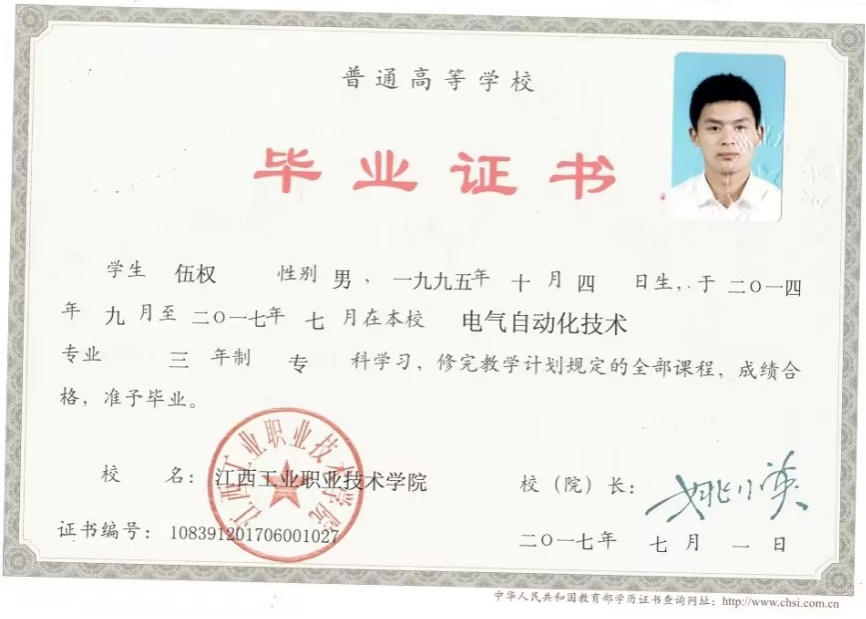 普通高等学校
毕业证书
学生 伍权 性别 男，一九九五年 十 月 四 日生，于 二〇一四
年 九 月至 二〇一七年 七 月在本校 电气自动化技术
专业 三 年制 专 科学习，修完教学计划规定的全部课程，成绩合
格，准予毕业。
江西工业职业技术学院
校 名：江西工业职业技术学院 校（院）长：
证书编号：108391201706001027 二〇一七年 七 月 一 日
中华人民共和国教育部学历证书查询网址：http://www.chsi.com.cn